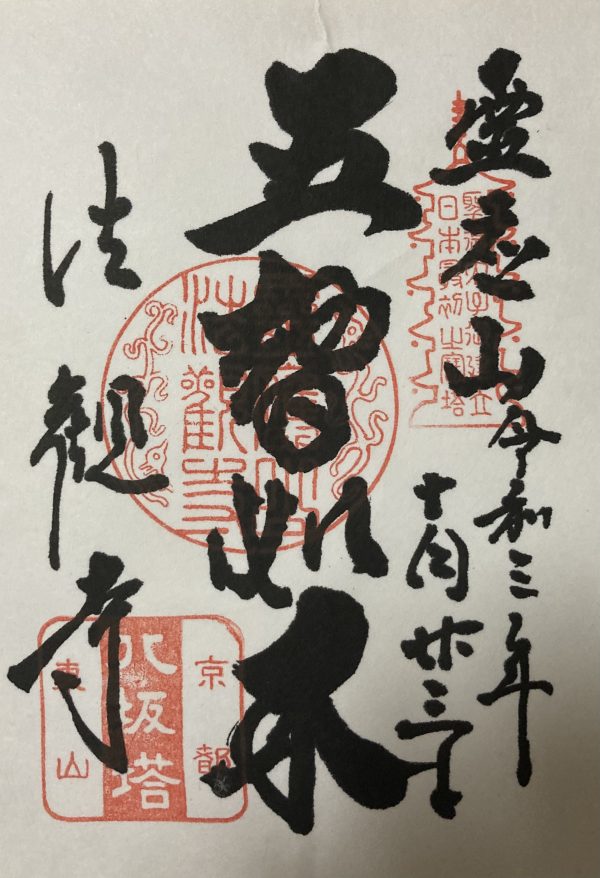 霊応山
令和三年
十月廿三日
五智如来
法観寺
日本最初之宝塔
京都
八坂塔
東山